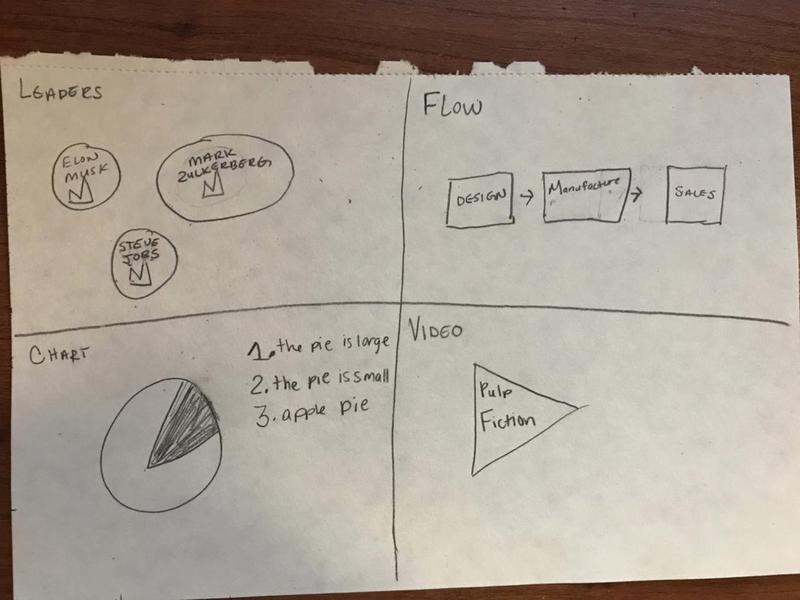 LEADERS
ELON
MUSK
MARK
ZUCKERBERG
STEVE
JOBS
FLOW
DESIGN
Manufacture
SALES
CHART
1. the pie is large
2. the pie is small
3. apple pie
VIDEO
Pulp
Fiction